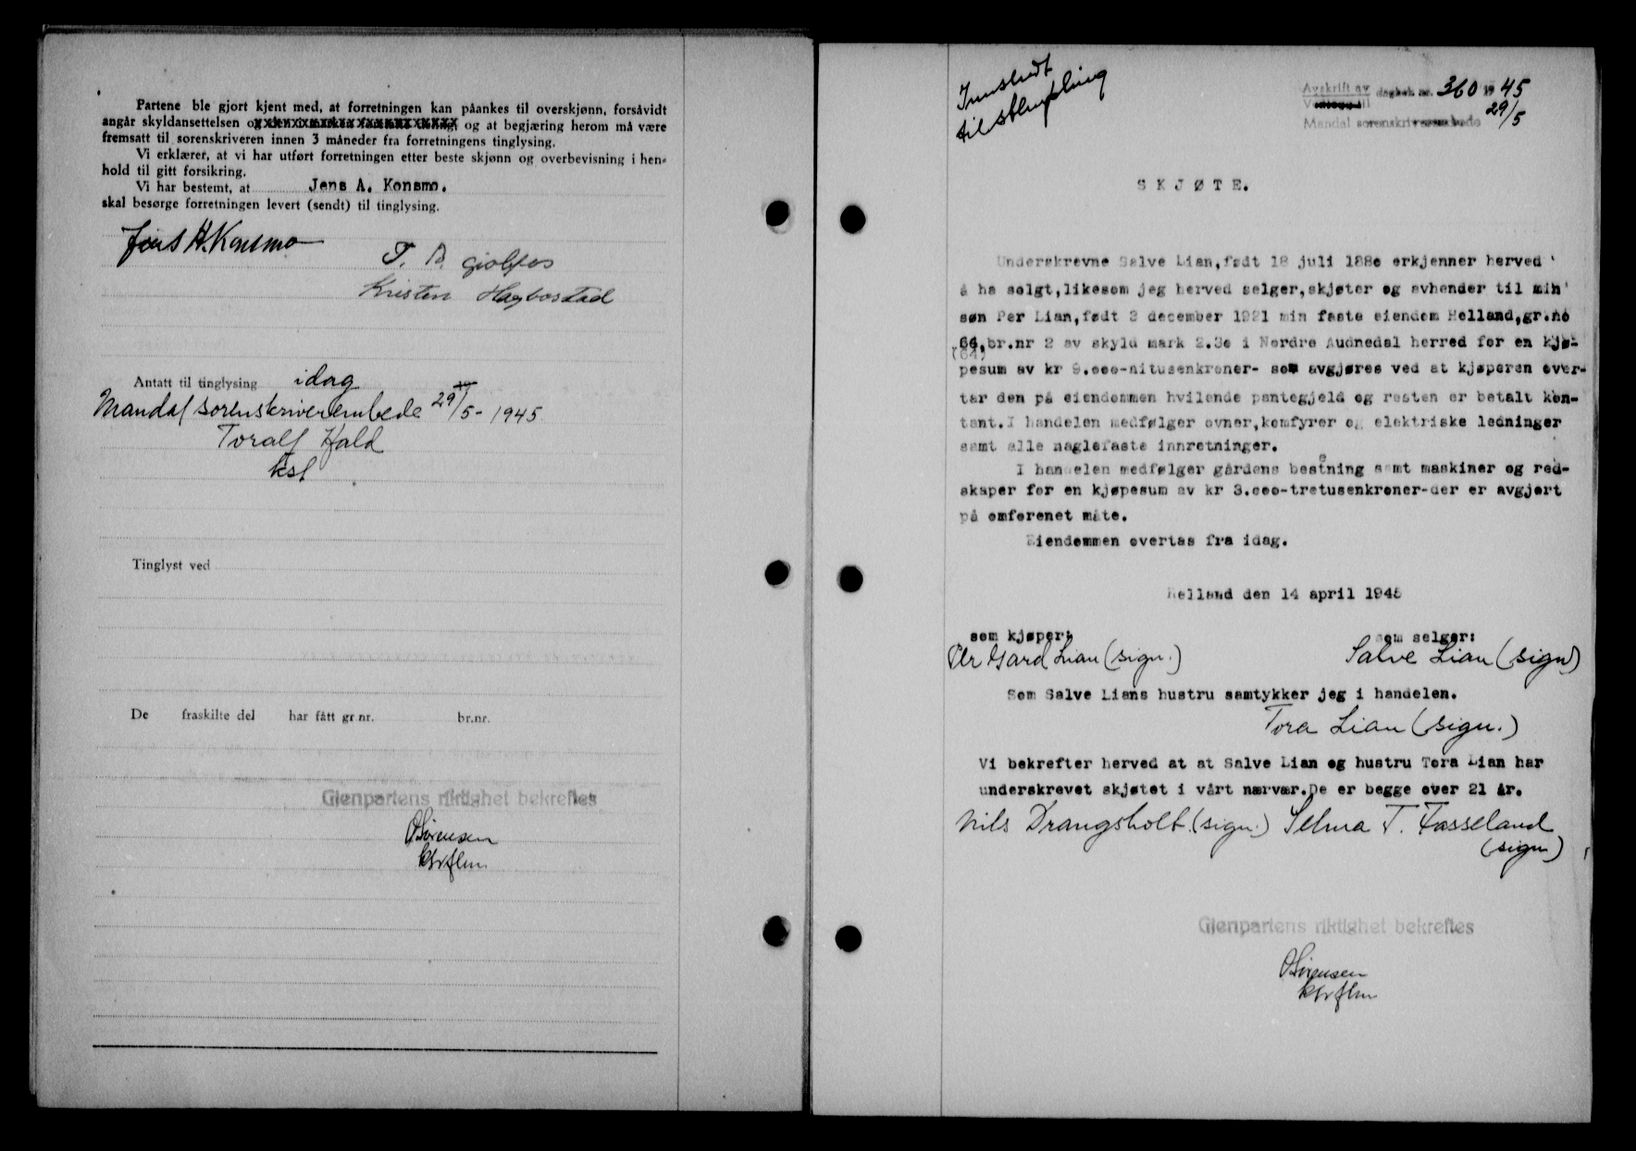 Partene ble gjort kjent med, at forretningen kan påankes til overskjønn, forsåvidt
angår skyldansettelsen og at begjæring herom må være
fremsatt til sorenskriveren innen 3 måneder fra forretningens tinglysing.
Vi erklærer, at vi har utført forretningen etter beste skjønn og overbevisning i hen-
hold til gitt forsikring.
Vi har bestemt, at Jens A. Konsmo.
skal besørge forretningen levert (sendt) til tinglysing.
Jens A. Konsmo
Kristen Hægbostad
Antatt til tinglysing idag
Mandal sorenskriverembede 29/5-1945
Toralf Hald
kst
Tinglyst ved
De fraskilte del har fått gr.nr. br.nr.
Gjenpartens riktighet bekreftes
OSørensen
Innsendt
til stempling
Avskrift av dagbok nr. 360 1945
29/5
Mandal sorenskriverembede
SKJØTE.
Underskrevne Salve Lian,født 18 juli 188o erkjenner herved
å ha solgt,likesom jeg herved selger,skjøter og avhender til min
søn Per Lian,født 2 december 1921 min faste eiendom Helland,gr.no
66,br.nr 2 av skyld mark 2.3o i Nordre Audnedal herred for en kjø-
(64)
pesum av kr 9.ooo-nitusenkroner- som avgjøres ved at kjøperen over-
tar den på eiendommen hvilende pantegjeld og resten er betalt kon-
tant.I handelen medfølger ovner,komfyrer og elektriske ledninger
samt alle naglefaste innretninger.
I handelen medfølger gårdens besetning samt maskiner og red-
skaper for en kjøpesum av kr 3.ooo-tretusenkroner-der er avgjort
på omforenet måte.
Eiendommen overtas fra idag.
Helland den 14 april 1945
som kjøper: som selger:
Per Gard Lian (sign.) Salve Lian (sign)
Som Salve Lians hustru samtykker jeg i handelen.
Tora Lian (sign.)
Vi bekrefter herved at at Salve Lian og hustru Tora Lian har
underskrevet skjøtet i vårt nærvær.De er begge over 21 år.
Nils Drangsholt.(sign.) Selma T. Fasseland
(sign)
Gjenpartens riktighet bekreftes
OSørensen